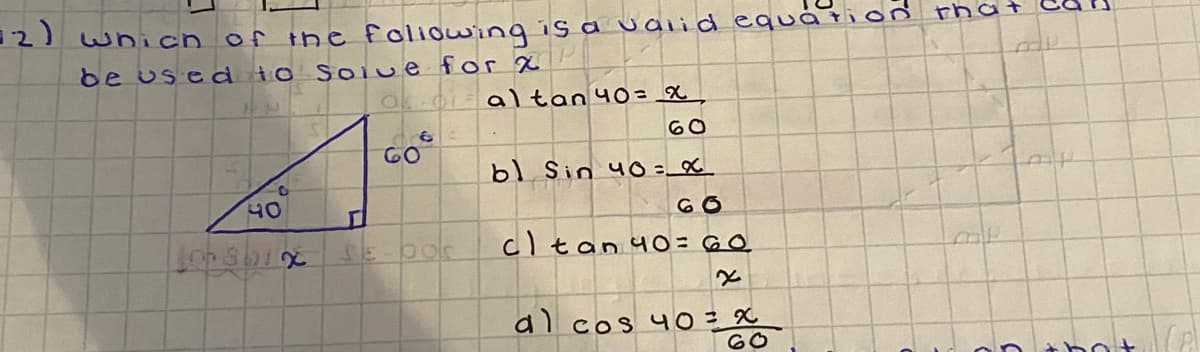 12) which of the following is a valid equation that can
be used to solve for x
a) tan 40 = x
60
60°
b) sin 40 = x
60
40°
c) tan 40 = 60
x
x
d) cos 40 = x
60